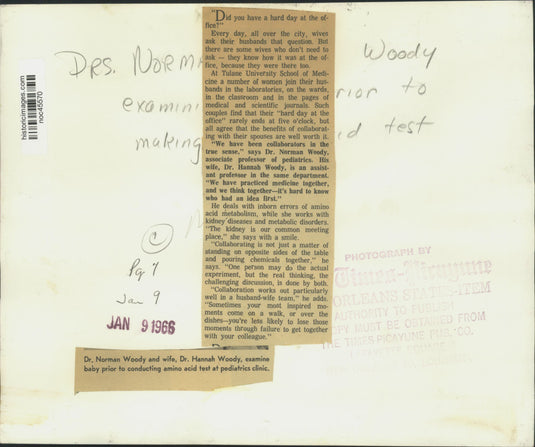 "Did you have a hard day at the of-
fice?"
Every day, all over the city, wives
ask their husbands that question. But
there are some wives who don't need to
ask — they know how it was at the of-
fice, because they were there too.
At Tulane University School of Medi-
cine a number of women join their hus-
bands in the laboratories, on the wards,
in the classroom and in the pages of
medical and scientific journals. Such
couples find that their "hard day at the
office" rarely ends at five o'clock, but
all agree that the benefits of collaborat-
ing with their spouses are well worth it.
"We have been collaborators in the
true sense," says Dr. Norman Woody,
associate professor of pediatrics. His
wife, Dr. Hannah Woody, is an assist-
ant professor in the same department.
"We have practiced medicine together,
and we think together—it's hard to know
who had an idea first."
He deals with inborn errors of amino
acid metabolism, while she works with
kidney diseases and metabolic disorders.
"The kidney is our common meeting
place," she says with a smile.
"Collaborating is not just a matter of
standing on opposite sides of the table
and pouring chemicals together," he
says. "One person may do the actual
experiment, but the real thinking, the
challenging discussion, is done by both.
"Collaboration works out particularly
well in a husband-wife team," he adds.
"Sometimes your most inspired mo-
ments come on a walk, or over the
dishes—you're less likely to lose those
moments through failure to get together
with your colleague."
DRS. NORM Woody
examini rior to
making d test
historicimages.com
noc45570
C
Pg 7
Jan 9
JAN 9 1966
PHOTOGRAPH BY
Times-Picayune
ORLEANS STATES-ITEM
AUTHORITY TO PUBLISH
MUST BE OBTAINED FROM
THE TIMES-PICAYUNE PUB. CO.
Dr. Norman Woody and wife, Dr. Hannah Woody, examine
baby prior to conducting amino acid test at pediatrics clinic.